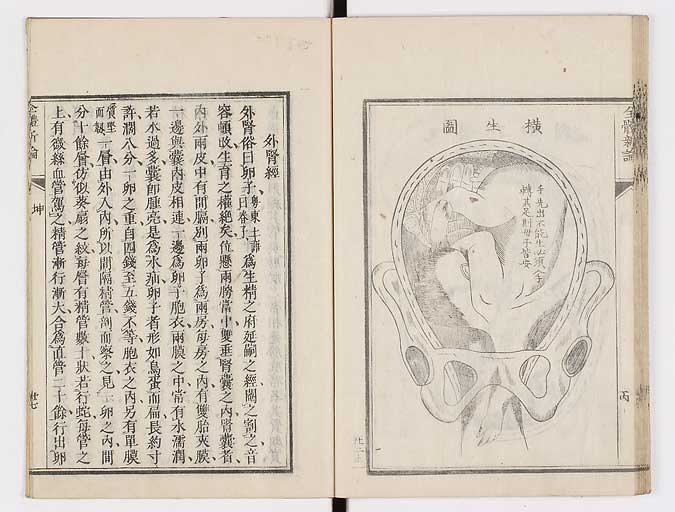 全體新論
圖生橫
手先出不能生必須入手
轉其足則母子皆安
丙
外腎經
外腎俗曰卵子粵東土譚曰春子爲生精之府延嗣之經閹之割之音
容頓改生育之權絕矣位懸兩髈當中雙垂腎囊之內腎囊者
內外兩皮中有間膈別兩卵子爲兩房每房之內有雙胎夾膜
一邊與囊內皮相連一邊爲卵子胞衣兩膜之中常有水濡潤
若水過多囊卽腫亮是爲水疝卵子者形如鳥蛋而扁長約寸
許濶八分一卵之重自四錢至五錢不等胞衣之內另有單膜
質堅而韌一層由外入內所以間隔精管剖而察之見一卵之內間
分十餘層彷似葵扇之紋每層有精管數十狀若行蛇每管之
上有微絲血管駕之精管漸行漸大合爲直管二十餘行出卵
全體新論
坤
廿七